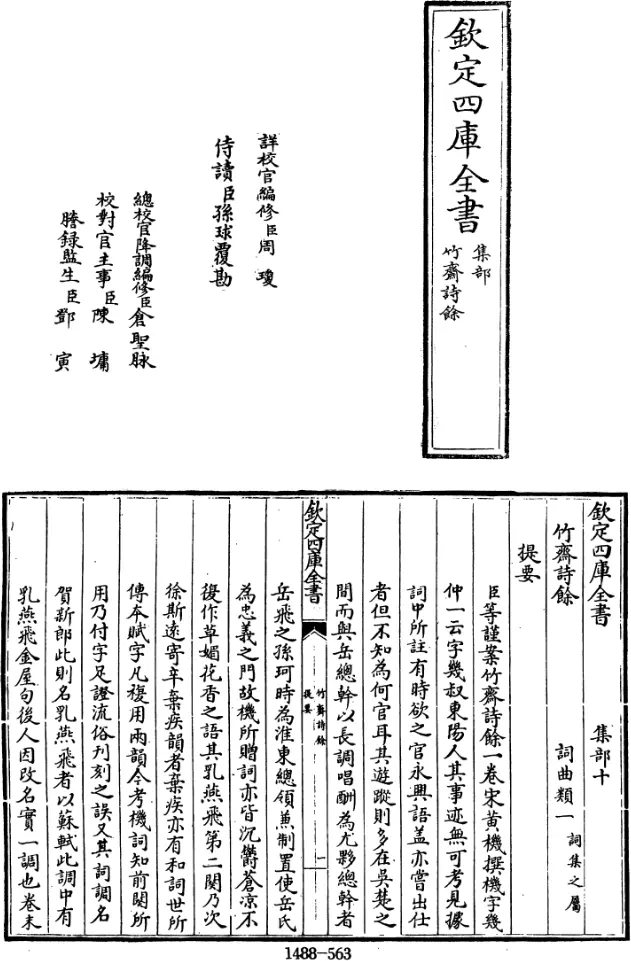 欽定四庫全書
集部
竹齋詩餘
詳校官編修臣周瓊
侍讀臣孫球覆勘
總校官降調編修臣倉聖脉
校對官主事臣陳墉
謄錄監生臣鄧寅
欽定四庫全書 集部十
竹齋詩餘 詞曲類一 詞集之屬
提要
臣等謹案竹齋詩餘一卷宋黃機撰機字幾
仲一云字幾叔東陽人其事迹無可考見據
詞中所註有時欲之官永興語蓋亦嘗出仕
者但不知為何官耳其遊蹤則多在吳楚之
間而與岳總幹以長調唱酬為尤夥總幹者
欽定四庫全書
竹齋詩餘
提要
一
岳飛之孫珂時為淮東總領兼制置使岳氏
為忠義之門故機所贈詞亦皆沉鬱蒼凉不
復作草媚花香之語其乳燕飛第二闋乃次
徐斯遠寄辛棄疾韻者棄疾亦有和詞世所
傳本賦字凡複用兩韻今考機詞知前闋所
用乃付字足證流俗刋刻之誤又其詞調名
賀新郎此則名乳燕飛者以蘇軾此調中有
乳燕飛金屋句後人因改名實一調也卷末
1488-563